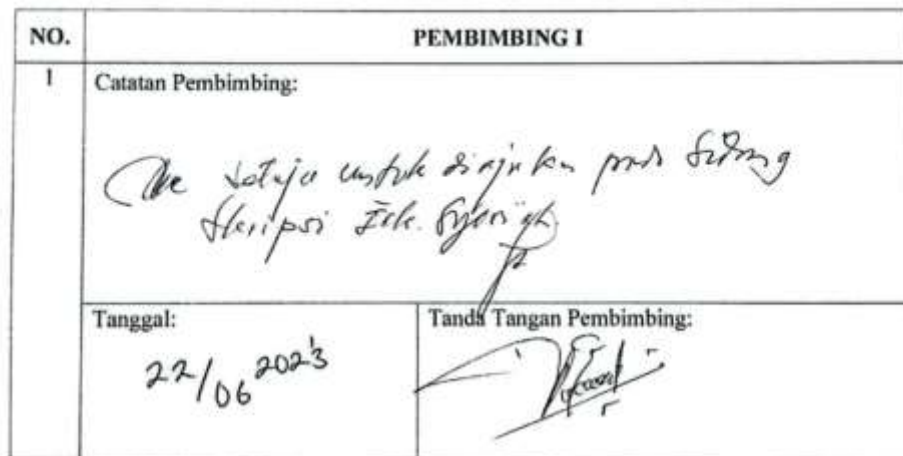 NO.
PEMBIMBING I
1
Catatan Pembimbing:
Acc Setuju untuk diajukan pada Sidang
Skripsi Ek. Syari'ah
Tanggal:
22/06 2023
Tanda Tangan Pembimbing: